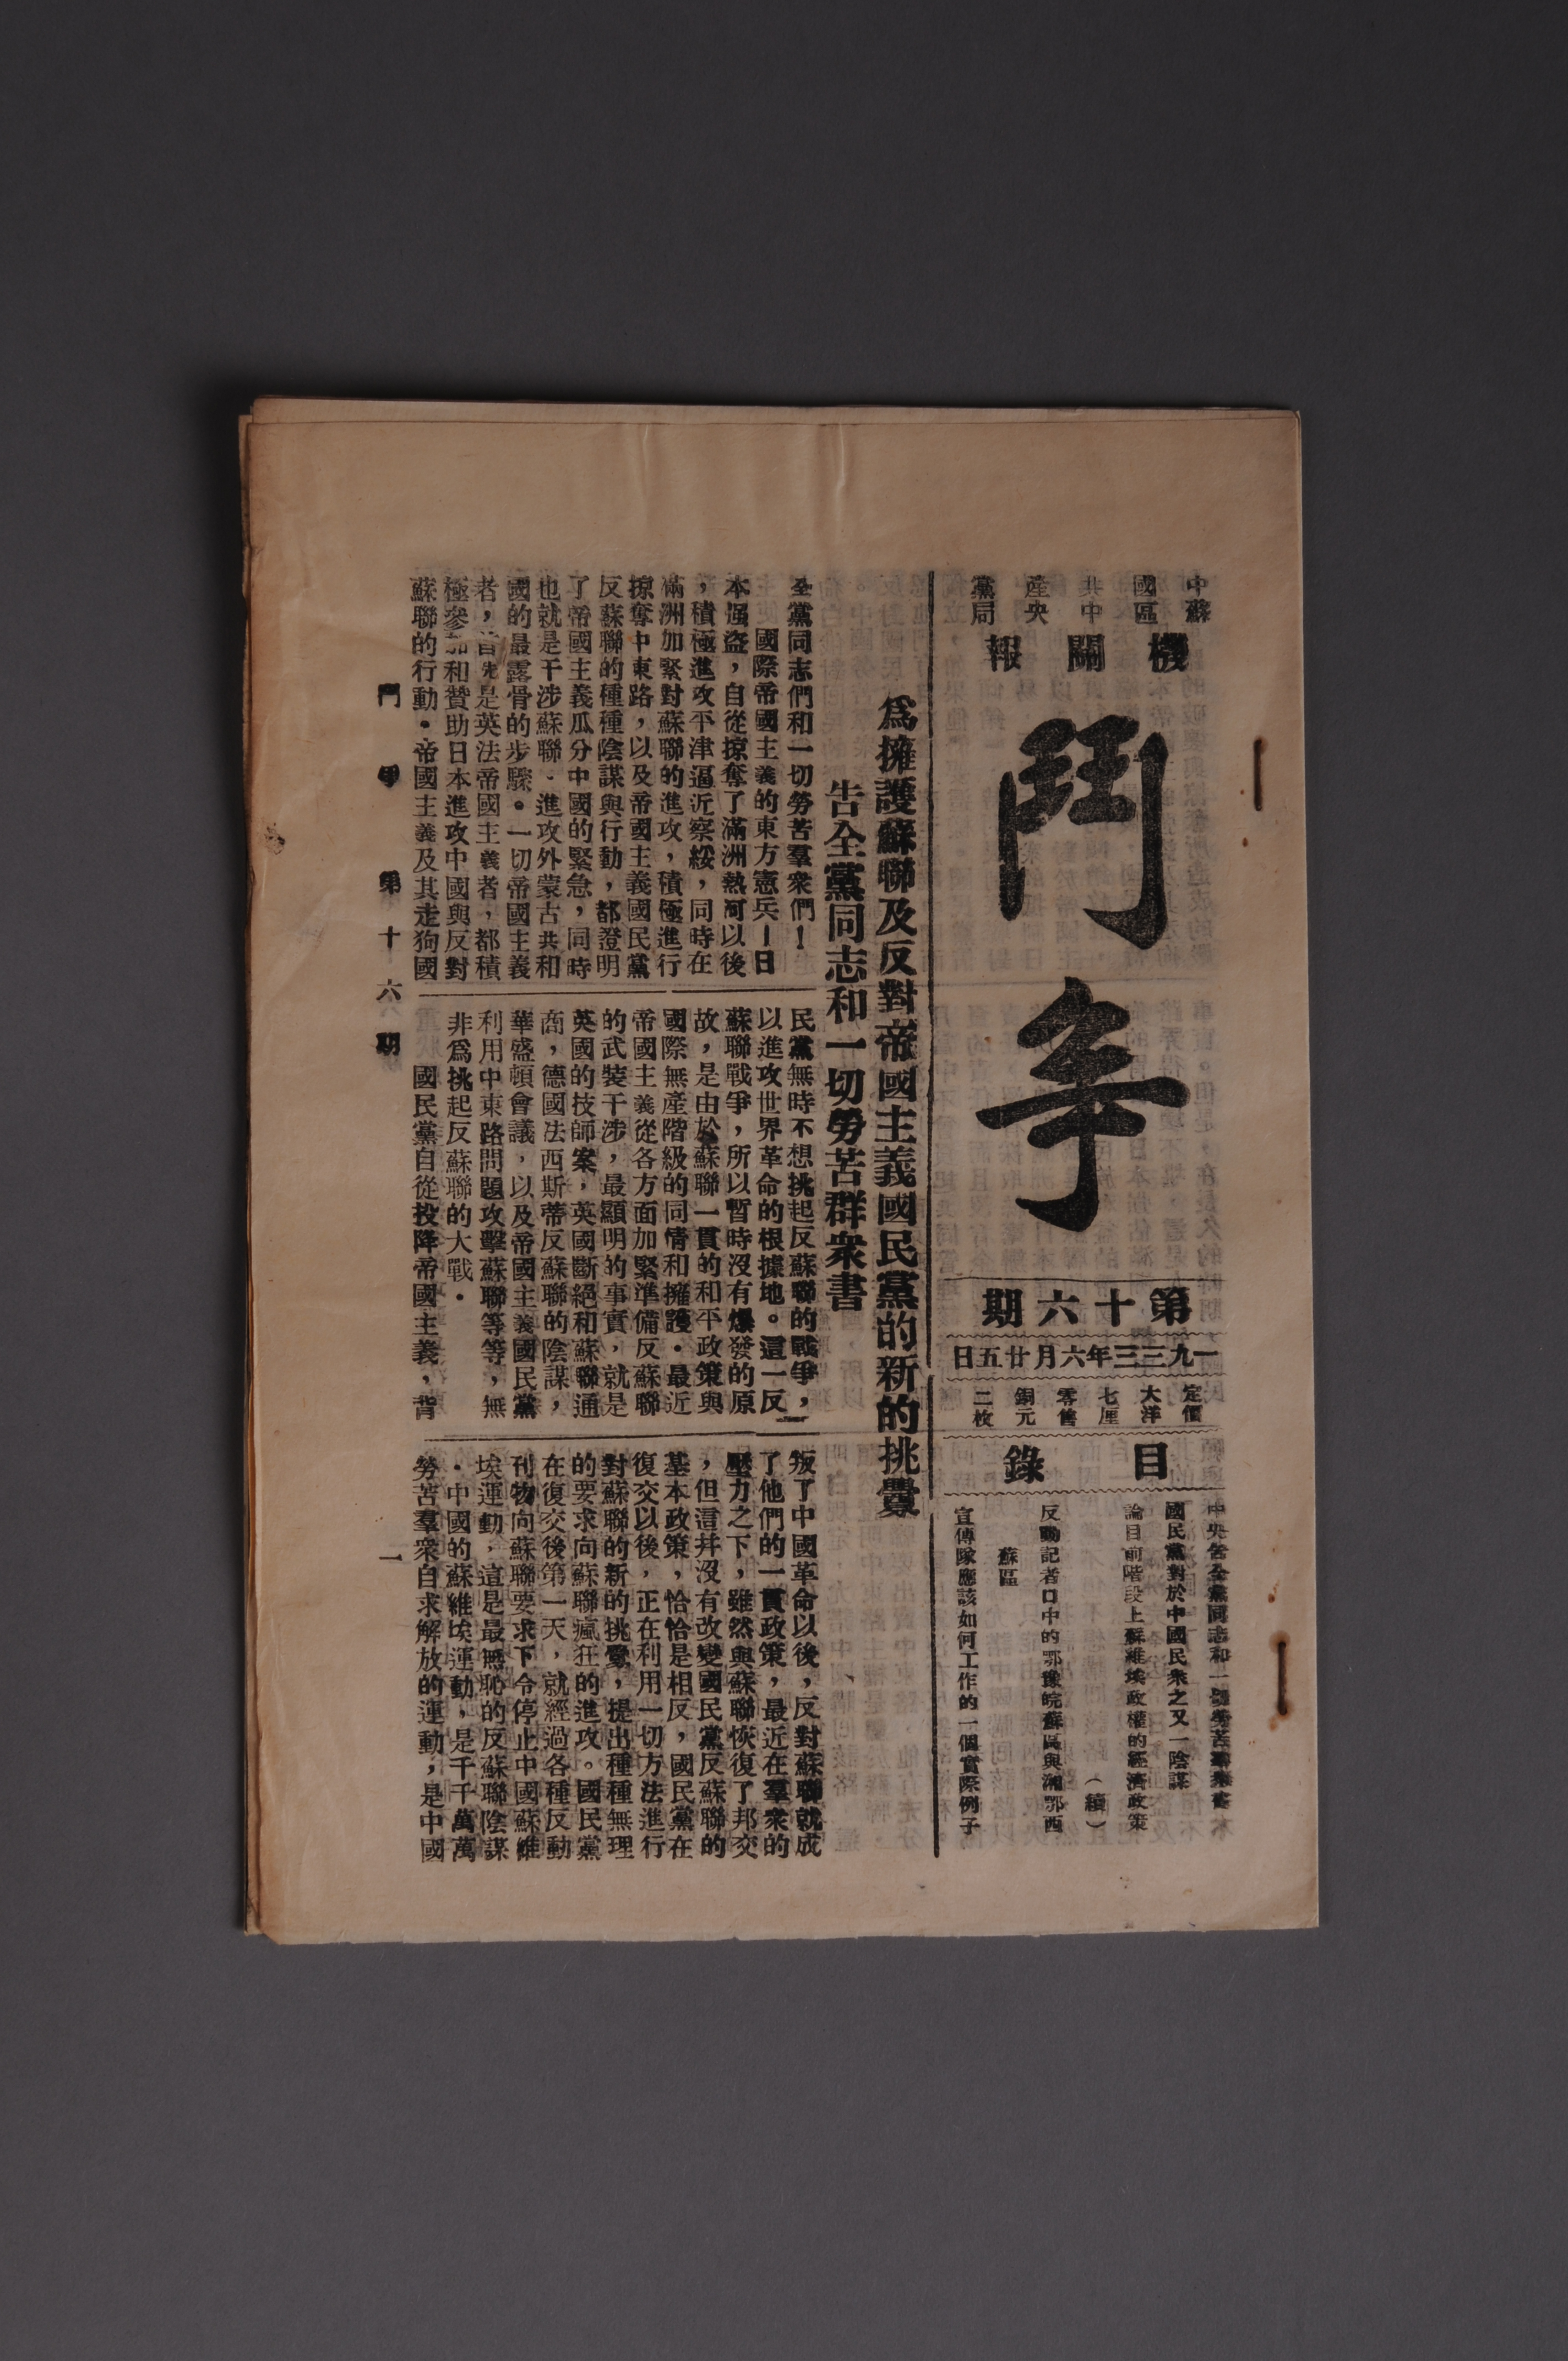 中國共產黨
蘇區中央局
機關報
鬥爭
第十六期
一九三三年六月廿五日
定價大洋七厘
零售銅元二枚
目錄
中央告全黨同志和一切勞苦羣衆書
國民黨對於中國民衆之又一陰謀
論目前階段上蘇維埃政權的經濟政策
(續)
反動記者口中的鄂豫皖蘇區與湘鄂西
蘇區
宣傳隊應該如何工作的一個實際例子
爲擁護蘇聯及反對帝國主義國民黨的新的挑釁
告全黨同志和一切勞苦群衆書
全黨同志們和一切勞苦羣衆們！
國際帝國主義的東方憲兵—日
本强盜，自從掠奪了滿洲熱河以後
，積極進攻平津逼近察綏，同時在
滿洲加緊對蘇聯的進攻，積極進行
掠奪中東路，以及帝國主義國民黨
反蘇聯的種種陰謀與行動，都證明
了帝國主義瓜分中國的緊急，同時
也就是干涉蘇聯．進攻外蒙古共和
國的最露骨的步驟。一切帝國主義
者，首先是英法帝國主義者，都積
極參加和贊助日本進攻中國與反對
蘇聯的行動．帝國主義及其走狗國
民黨無時不想挑起反蘇聯的戰爭，
以進攻世界革命的根據地。這一反
蘇聯戰爭，所以暫時沒有爆發的原
故，是由於蘇聯一貫的和平政策與
國際無產階級的同情和擁護．最近
帝國主義從各方面加緊準備反蘇聯
的武裝干涉，最顯明的事實，就是
英國的技師案，英國斷絕和蘇聯通
商，德國法西斯蒂反蘇聯的陰謀，
華盛頓會議，以及帝國主義國民黨
利用中東路問題攻擊蘇聯等等，無
非爲挑起反蘇聯的大戰．
國民黨自從投降帝國主義，背
叛了中國革命以後，反對蘇聯就成
了他們的一貫政策，最近在羣衆的
壓力之下，雖然與蘇聯恢復了邦交
，但這幷沒有改變國民黨反蘇聯的
基本政策，恰恰是相反，國民黨在
復交以後，正在利用一切方法進行
對蘇聯的新的挑釁，提出種種無理
的要求向蘇聯瘋狂的進攻。國民黨
在復交後第一天，就經過各種反動
刊物向蘇聯要求下令停止中國蘇維
埃運動，這是最無恥的反蘇聯陰謀
．中國的蘇維埃運動，是千千萬萬
勞苦羣衆自求解放的運動，是中國
鬥爭 第十六期 一